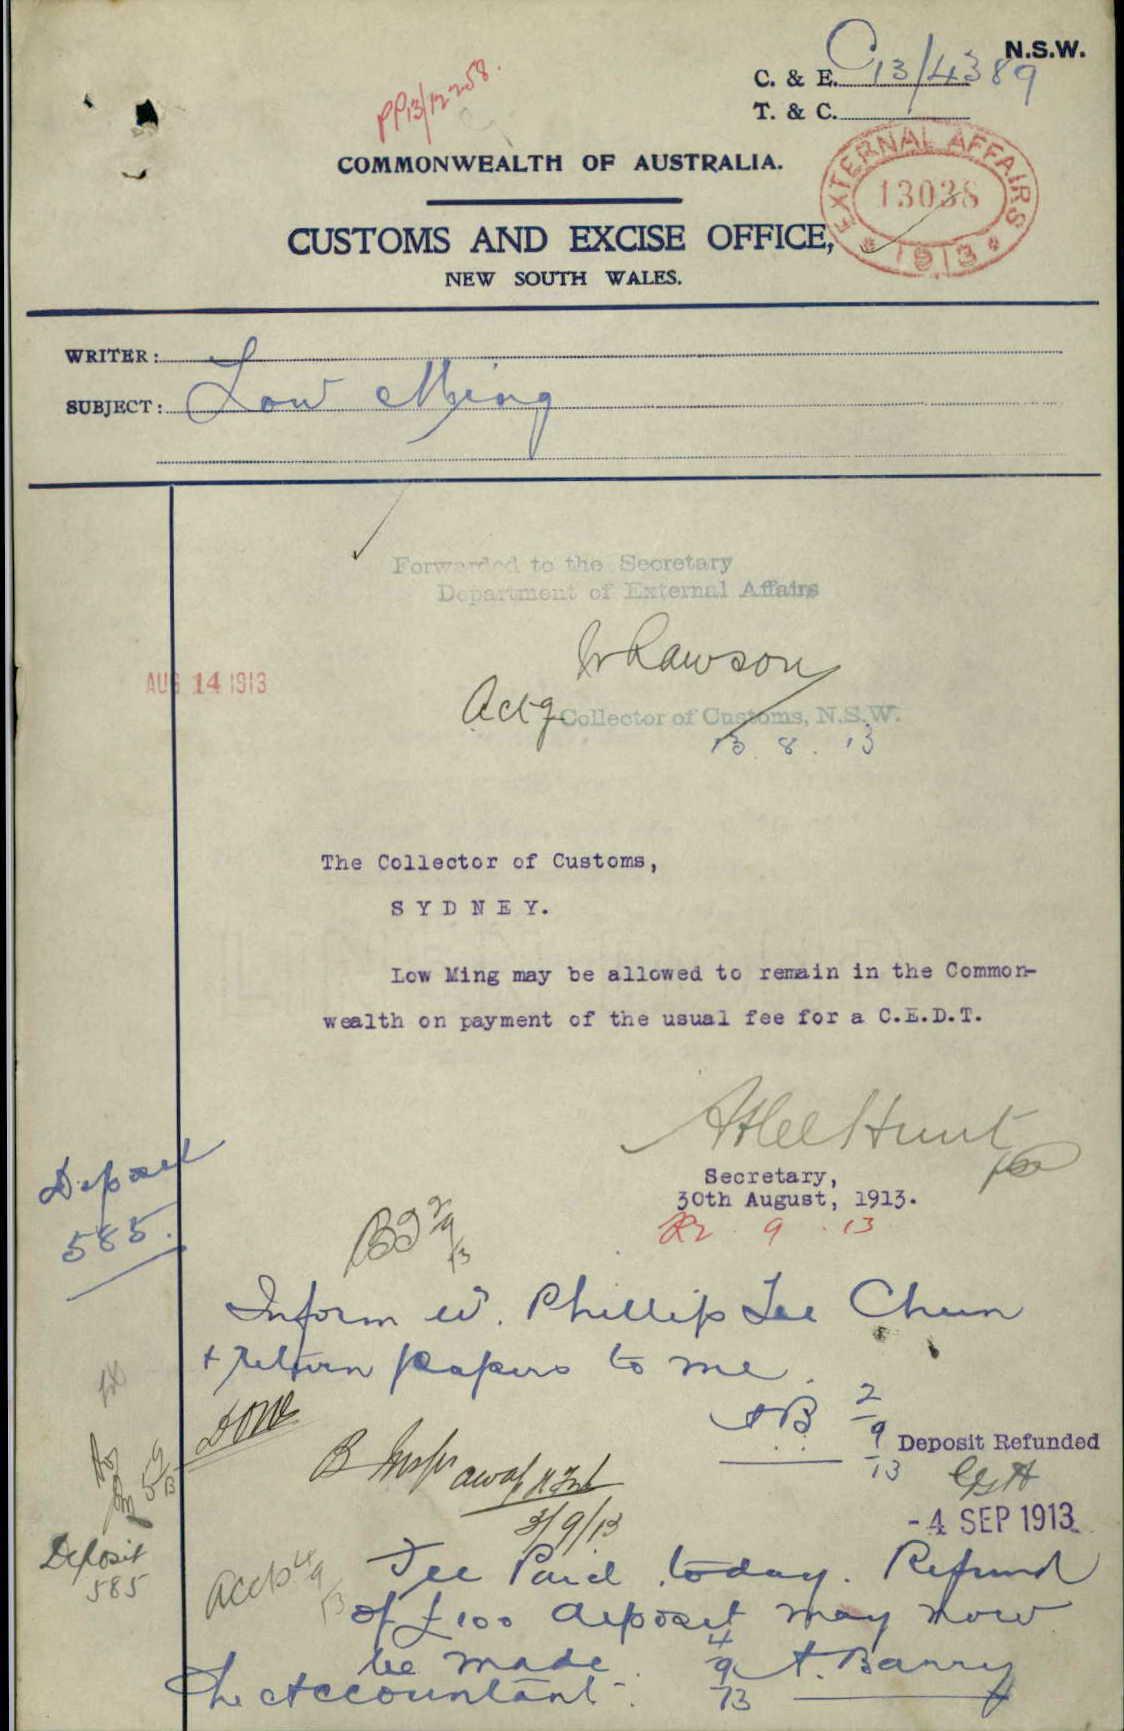 N.S.W.
C. & E. C13/4389
T. & C.
PP13/12258.
COMMONWEALTH OF AUSTRALIA.
EXTERNAL AFFAIRS
13038
* 1913 *
CUSTOMS AND EXCISE OFFICE,
NEW SOUTH WALES.
WRITER:
SUBJECT: Low Ming
Forwarded to the Secretary
Department of External Affairs
W Rawson
AUG 14 1913
Actg Collector of Customs, N.S.W.
13. 8. 13
The Collector of Customs,
SYDNEY.
Low Ming may be allowed to remain in the Common-
wealth on payment of the usual fee for a C.E.D.T.
Atlee Hunt
Secretary,
30th August, 1913.
9. 13
Deposit
585.
2/9/13
Inform W. Phillip Lee Chun
+ return papers to me.
AB 2/9/13
Deposit Refunded
- 4 SEP 1913
B Inspr
3/9/13
5/9/13
Deposit
585
Accts 4/9/13
Fee Paid today. Refund
of £100 deposit may now
be made.
4/9/13 A. Barry
The Accountant.